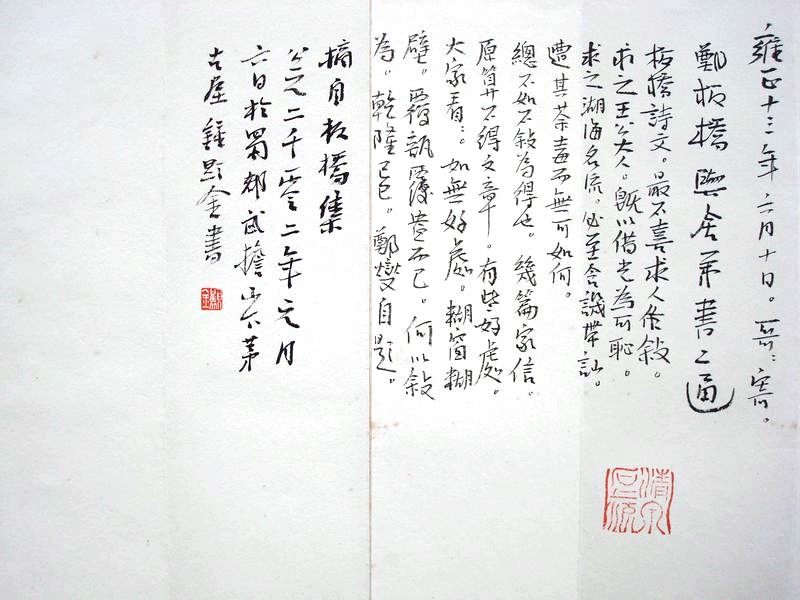 雍正十三年六月十日。哥〻寄。
鄭板橋與舍弟書
板橋詩文。最不喜求人作敘。
求之王公大人。既以借光為可恥。
求之湖海名流。必至含譏帶訕。
遭其荼毒而無可如何。
總不如不敘為得也。幾篇家信。
原算不得文章。有些好處。
大家看〻。如無好處。糊窗糊
壁。覆瓿覆盎而已。何以敘
為。乾隆己巳。鄭燮自題。
摘自板橋集
公元二千零二年元月
六日於蜀郡武擔山
古屋 金書
清泉石上流